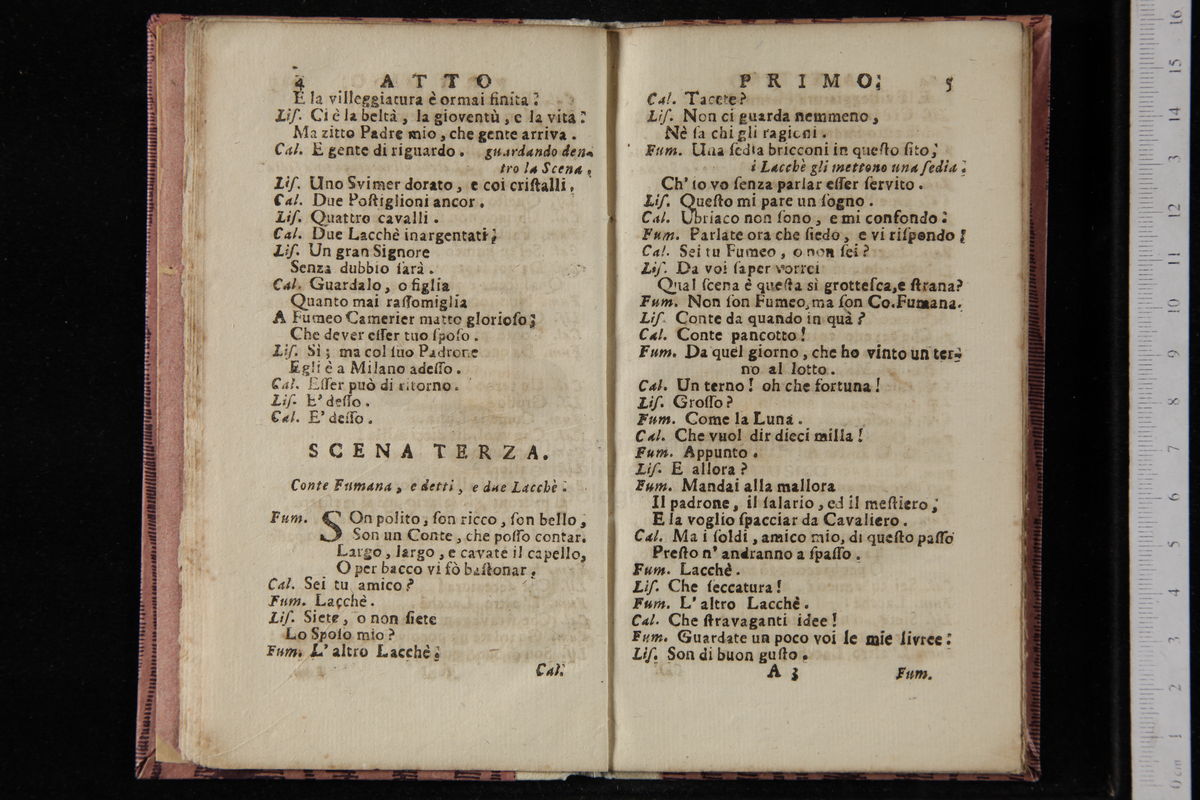 4 ATTO
E la villeggiatura è ormai finita.
Liſ. Ci è la beltà, la gioventù, e la vita.
Ma zitto Padre mio, che gente arriva.
Cal. E gente di riguardo. guardando den-
tro la Scena.
Liſ. Uno Svimer dorato, e coi criſtalli.
Cal. Due Poſtiglioni ancor.
Liſ. Quattro cavalli.
Cal. Due Lacchè inargentati.
Liſ. Un gran Signore
Senza dubbio ſarà.
Cal. Guardalo, o figlia
Quanto mai raſſomiglia
A Fumeo Camerier matto glorioſo,
Che dever eſſer tuo ſpoſo.
Liſ. Sì; ma col ſuo Padrone
Egli è a Milano adeſſo.
Cal. Eſſer può di ritorno.
Liſ. E' deſſo.
Cal. E' deſſo.
SCENA TERZA.
Conte Fumana, e detti, e due Lacchè.
Fum. SOn polito, ſon ricco, ſon bello,
Son un Conte, che poſſo contar.
Largo, largo, e cavate il capello,
O per bacco vi fò baſtonar.
Cal. Sei tu amico?
Fum. Lacchè.
Liſ. Siete, o non ſiete
Lo Spoſo mio?
Fum. L'altro Lacchè.
Cal.
PRIMO. 5
Cal. Tacete?
Liſ. Non ci guarda nemmeno,
Nè ſa chi gli ragioni.
Fum. Una ſedia bricconi in queſto ſito,
i Lacchè gli mettono una ſedia.
Ch' io vo ſenza parlar eſſer ſervito.
Liſ. Queſto mi pare un ſogno.
Cal. Ubriaco non ſono, e mi confondo.
Fum. Parlate ora che ſiedo, e vi riſpondo.
Cal. Sei tu Fumeo, o non ſei?
Liſ. Da voi ſaper vorrei
Qual ſcena è queſta sì grotteſca, e ſtrana?
Fum. Non ſon Fumeo, ma ſon Co. Fumana.
Liſ. Conte da quando in quà?
Cal. Conte pancotto!
Fum. Da quel giorno, che ho vinto un ter-
no al lotto.
Cal. Un terno! oh che fortuna!
Liſ. Groſſo?
Fum. Come la Luna.
Cal. Che vuol dir dieci milla!
Fum. Appunto.
Liſ. E allora?
Fum. Mandai alla mallora
Il padrone, il ſalario, ed il meſtiero,
E la voglio ſpacciar da Cavaliero.
Cal. Ma i ſoldi, amico mio, di queſto paſſo
Preſto n' andranno a ſpaſſo.
Fum. Lacchè.
Liſ. Che ſeccatura!
Fum. L'altro Lacchè.
Cal. Che ſtravaganti idee!
Fum. Guardate un poco voi le mie livree.
Liſ. Son di buon guſto.
A 3 Fum.
0 cm 1 2 3 4 5 6 7 8 9 10 11 12 13 14 15 16